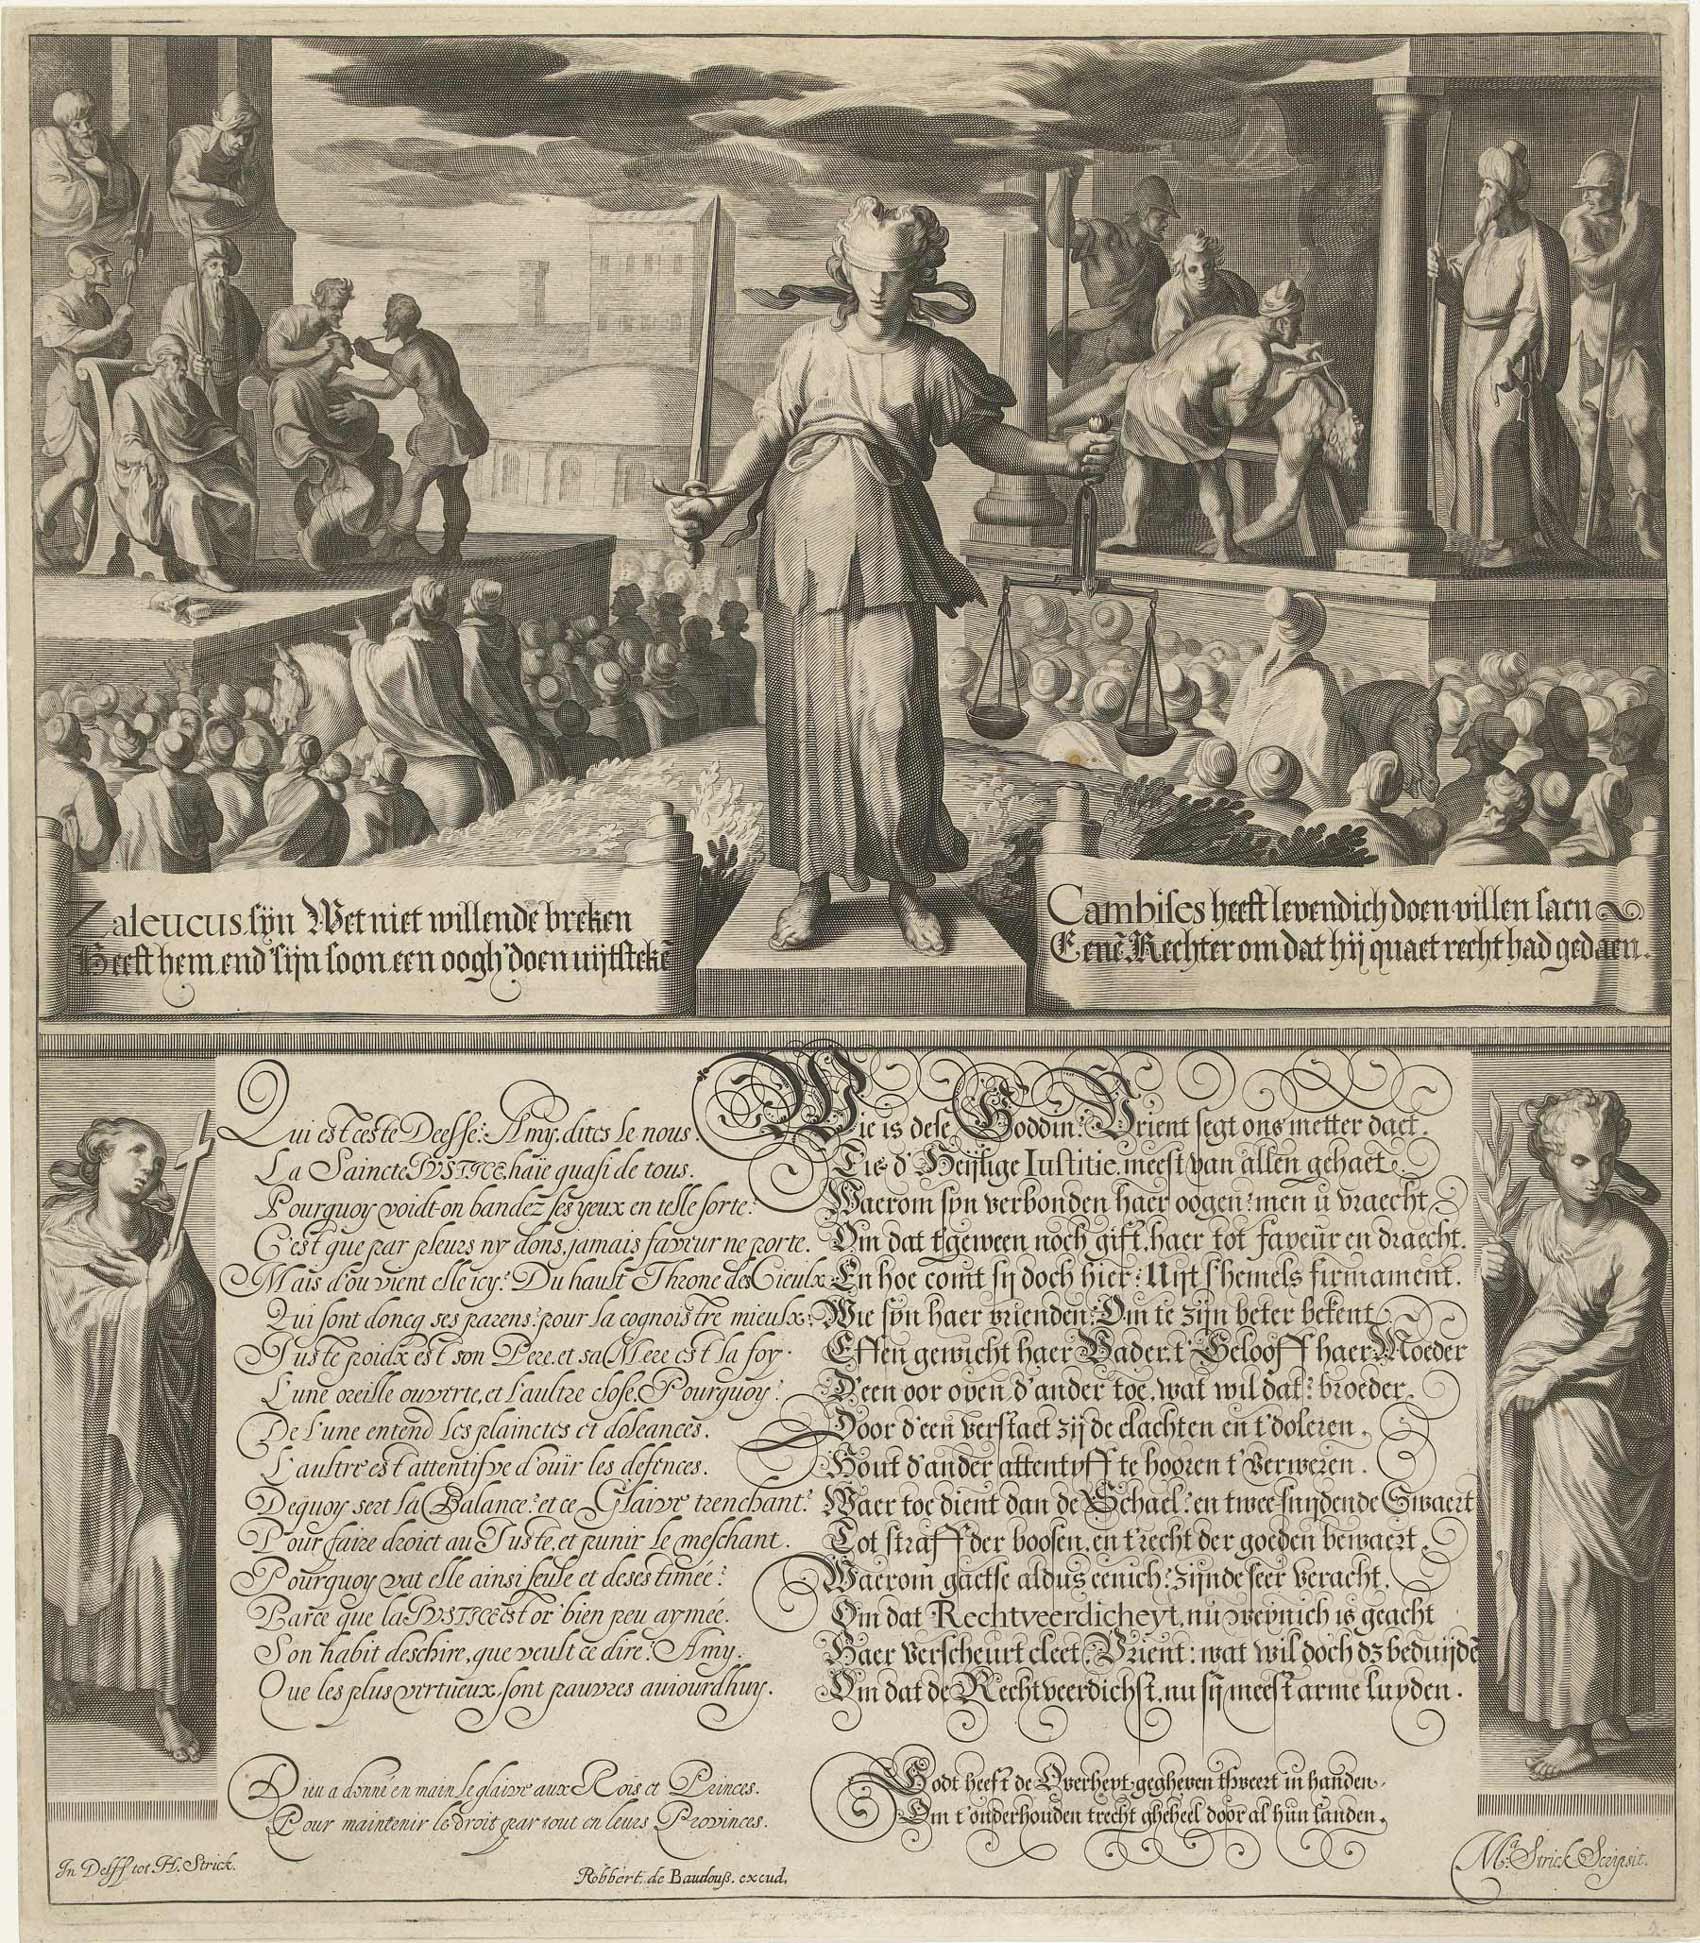 Zaleucus sÿn Wet niet willende breken
Heeft hem end' sijn soon een oogh' doen uijtstekē
Cambises heeft levendich doen villen saen
Eenē Rechter om dat hij quaet recht had gedaen.
Qui est ceste Deesse? Amy, dites le nous?
La Saincte IVSTICE, haïe quasi de tous.
Pourquoy voidt-on bandez ses yeux en telle sorte?
C'est que par pleurs ny dons, jamais faveur ne porte.
Mais d'ou vient elle icy? Du hault Throne des Cieulx.
Qui sont doncq ses parens? pour la cognoistre mieulx?
Juste poidx est son Pere, et sa Mere est la foy.
L'une oreille ouverte, et l'aultre close, Pourquoy?
De l'une entend les plainctes et doleances.
L'aultre est attentifve d'ouïr les defences.
Dequoy sert la Balance? et ce Glaive trenchant?
Pour faire droict au Juste, et punir le meschant.
Pourquoy vat elle ainsi seule et desestimée?
Parce que la IVSTICE est or' bien peu aymée.
Son habit deschire, que veult ce dire? Amy.
Que les plus vertueux, sont pauvres aujourdhuy.
Dieu a donné en main le glaive aux Rois et Princes.
Pour maintenir le droit par tout en leurs Provinces.
Wie is dese Goddin? Vrient segt ons metter daet.
Tis d' Heijlige Iustitie, meest van allen gehaet.
Waerom syn verbonden haer oogen? men u vraecht
Om dat tgeween noch gift, haer tot faveur en draecht.
En hoe comt sy doch hier? Uijt s'hemels firmament.
Wie syn haer vrienden? Om te zijn beter bekent
Effen gewicht haer Vader, t' Gelooff haer Moeder
D'een oor open, d'ander toe, wat wil dat? broeder.
Door d'een verstaet zij de clachten en t'doleren.
Hout d'ander attentyff te hooren t' Verweren.
Waer toe dient dan de Schael? en twee-snijdende Swaert
Tot straff der boosen, en t'recht der goeden bewaert.
Waerom gaetse aldus eenich? zijnde seer veracht.
Om dat Rechtveerdicheyt, nu weynich is geacht
Haer verscheurt cleet, Vrient: wat wil doch dz beduijdē
Om dat de Rechtveerdichst, nu sij meest arme luyden.
Godt heeft de Overheyt gegheven thveert in handen.
Om t'onderhouden trecht gheheel door al hun landen.
In Delff tot H. Strick.
Robbert de Baudouß. excud,
Ma. Strick Scripsit.